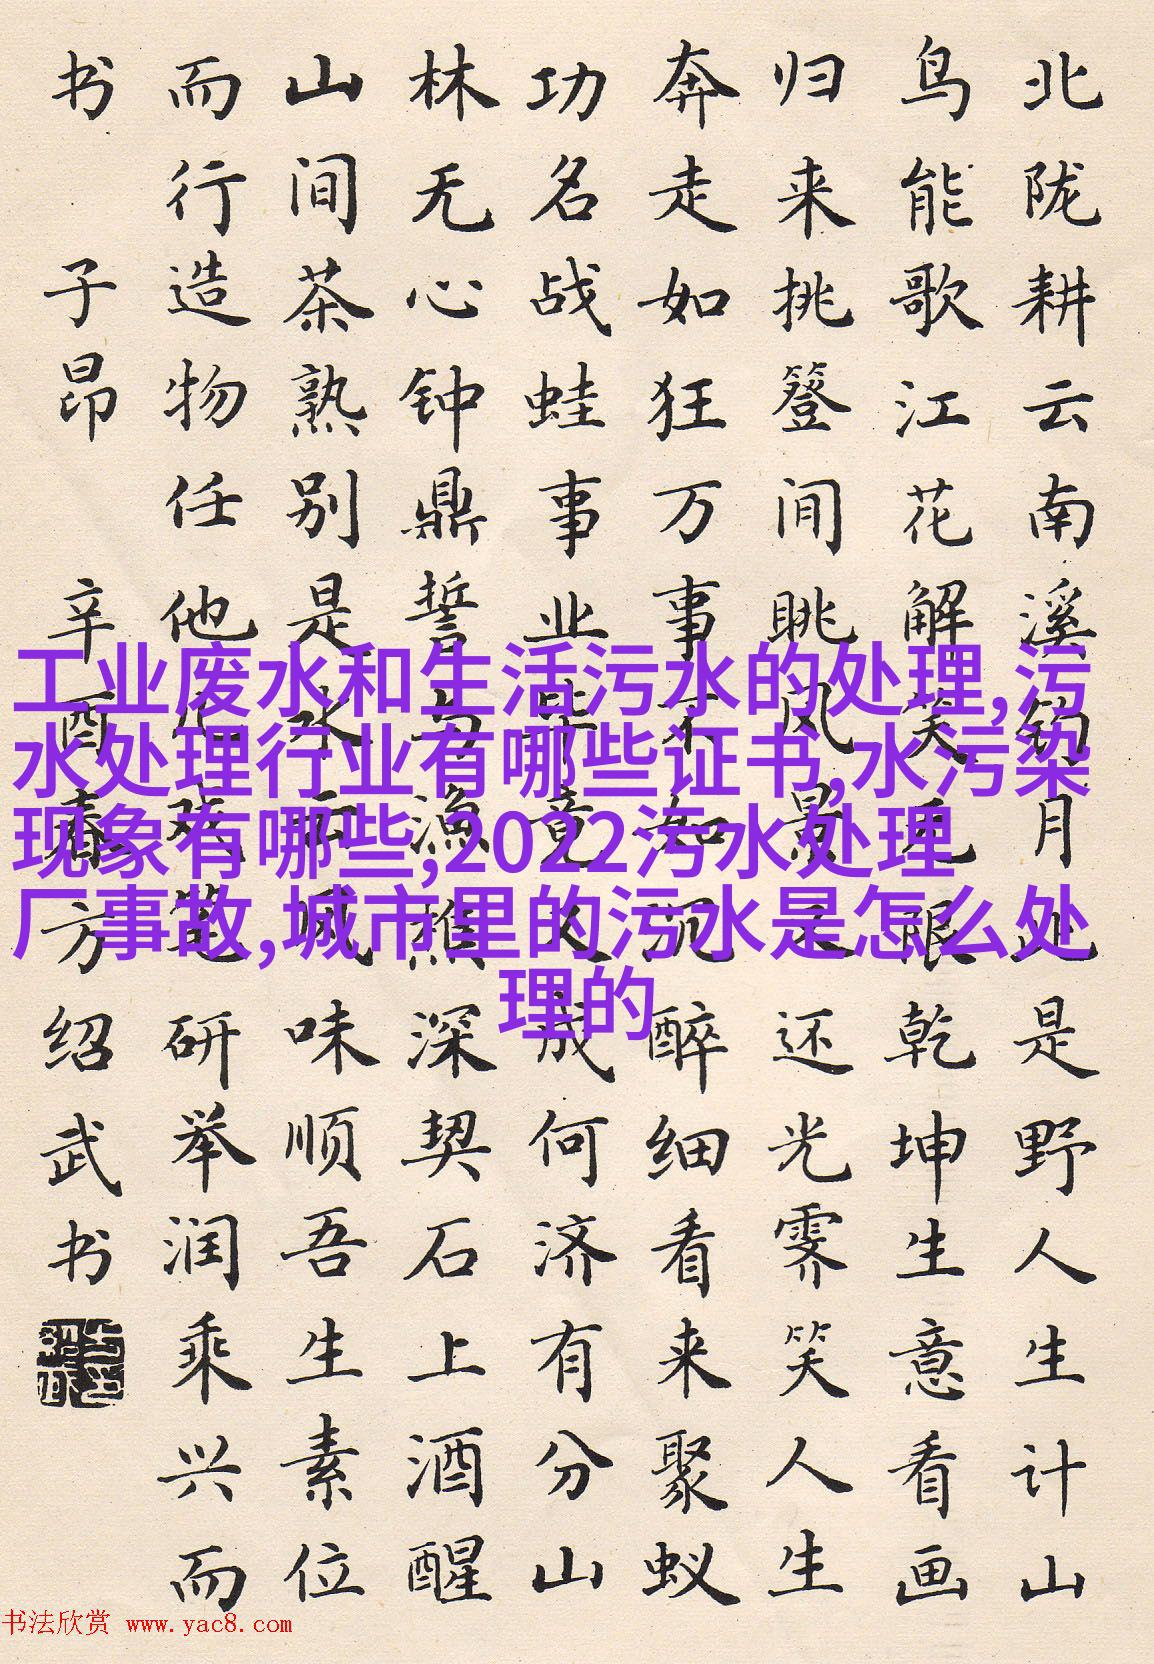 北陇耕云南溪钓月此是野人生计山
鸟能歌江花解笑无限乾坤生意看画
归来挑簦间眺风景又还光霁笑人生
奔走如狂万事不如沉醉细看来聚蚁
功名战蛙事业毕竟又成何济有分山
林无心钟鼎誓与渔樵深契石上酒醒
山间茶熟别是水云风味顺吾生素位
而行造物任他儿戏笔研举润乘兴而
书 子昂 辛酉春方绍武书
工业废水和生活污水的处理,污
水处理行业有哪些证书,水污染
现象有哪些,2022污水处理
厂事故,城市里的污水是怎么处
理的
书法欣赏 www.yac8.com